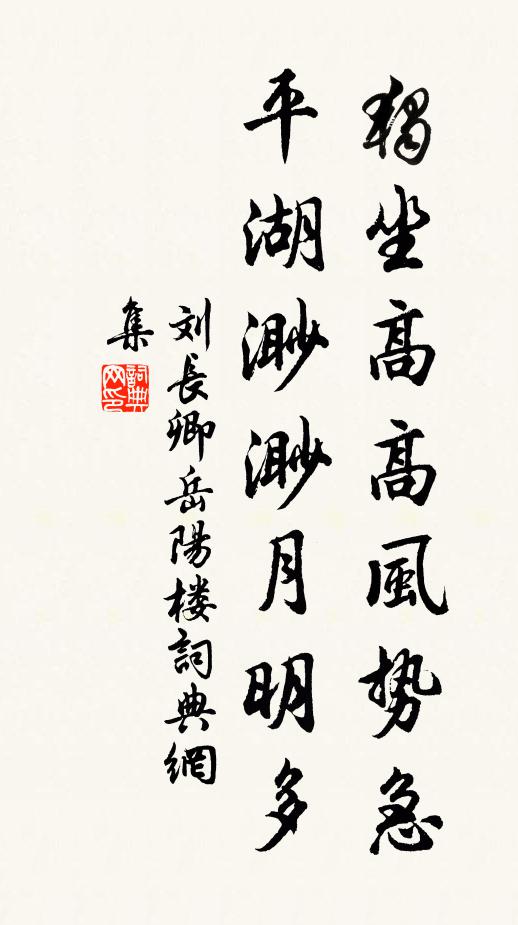 獨坐高高風势急
平湖渺渺月明多
刘長卿岳陽楼詞典網
集
詞典
网印